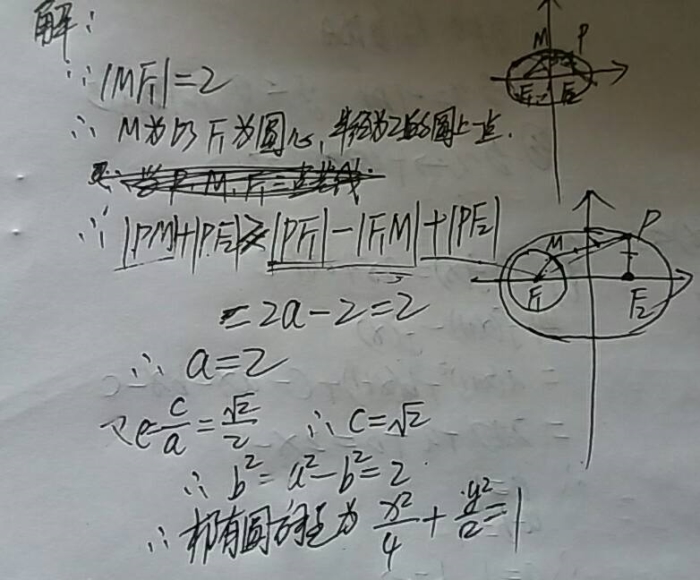 解:
∵|MF₁|=2
∴M为以F₁为圆心,半径为2的圆上一点.
∴|PM|+|PF₂|≥|PF₁|-|F₁M|+|PF₂|
=2a-2=2
∴a=2
又e=c/a=√2/2 ∴c=√2
∴b²=a²-b²=2
∴椭圆方程为 x²/4+y²/2=1
M P
F₁ F₂
M P
F₁ F₂